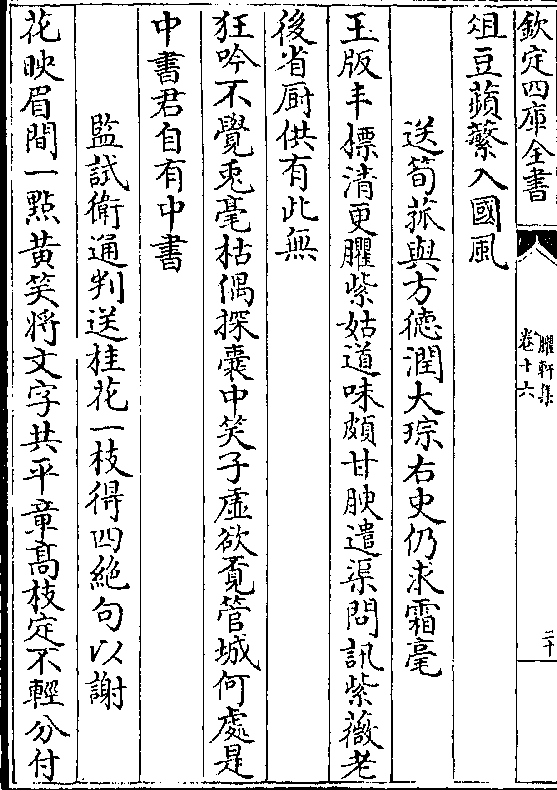 欽定四庫全書
臞軒集
卷十六
二十
俎豆蘋蘩入國風
送筍菰與方德潤大琮右史仍求霜毫
玉版丰標清更臞紫姑道味頗甘腴遣渠問訊紫薇老
後省厨供有此無
狂吟不覺兎毫枯偶探囊中笑子虛欲覔管城何處是
中書君自有中書
監試衛通判送桂花一枝得四絶句以謝
花映眉間一點黄笑將文字共平章髙枝定不輕分付